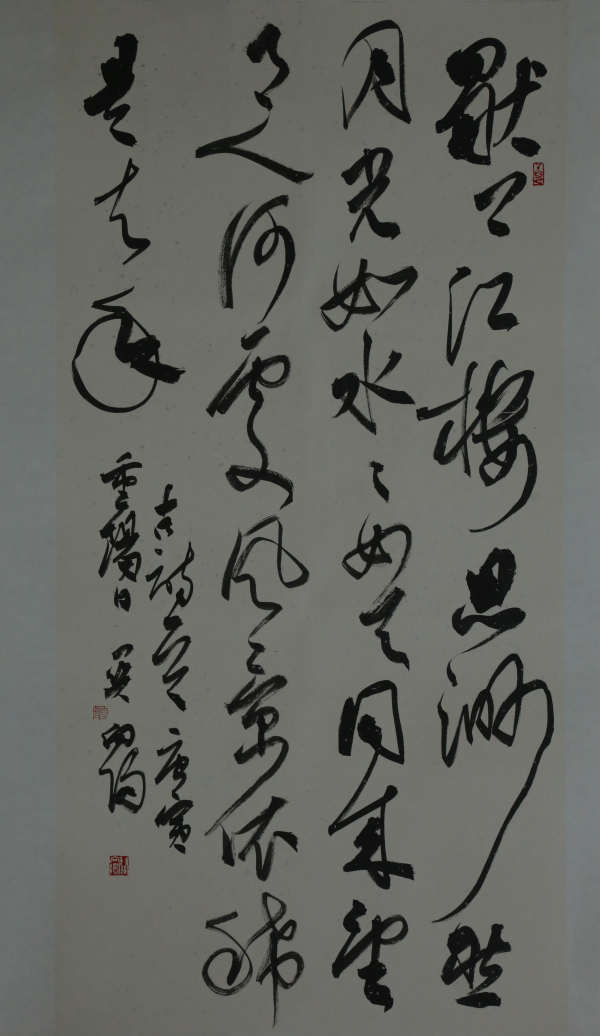 獨上江樓思渺然
月光如水々如天同來望
月人何處風景依稀
是去年
古詩一首 庚寅
重陽日